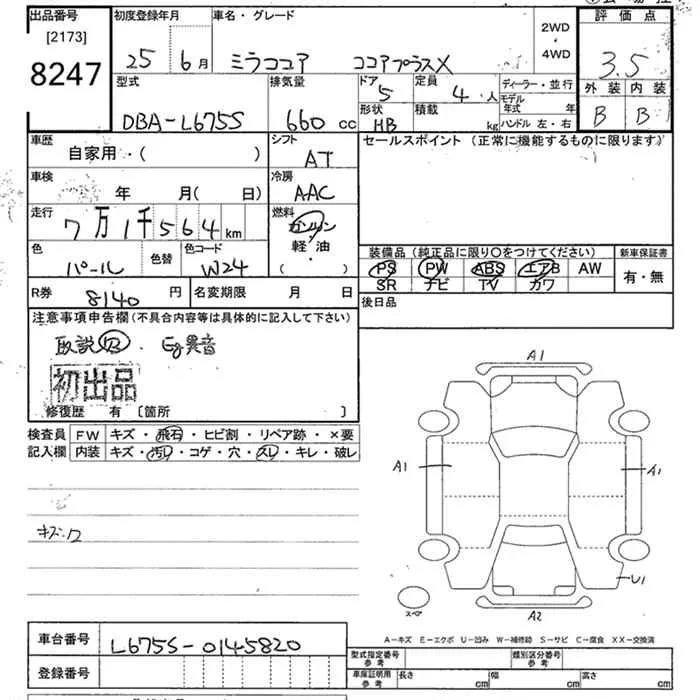 出品番号 初度登録年月 車名・グレード 評価点
[2173] 8247
25 6月 ミラココア ココアプラスX
2WD・4WD
3.5
型式 排気量 ドア 定員 ディーラー・並行
DBA-L675S 660cc 5 4人 モデル年式 年
形状 積載 ハンドル 左・右
HB kg
外装 内装
B B
車歴 自家用・( ) シフト AT
セールスポイント (正常に機能するものに限ります)
車検 年 月(日) 冷房 AAC
走行 7万1千564km 燃料 ガソリン 軽・油 ( )
色 パール 色替 色コード W24
装備品(純正品に限り○をつけてください) 新車保証書
PS PW ABS エアB AW 有・無
SR ナビ TV カワ
R券 8140円 名変期限 月 日 後日品
注意事項申告欄(不具合内容等は具体的に記入して下さい)
取説 Eg異音
初出品
修復歴 有 [箇所 ]
検査員 FW キズ・飛石・ヒビ割・リペア跡・×要
記入欄 内装 キズ・汚レ・コゲ・穴・スレ・キレ・破レ
キズ・ワ
A1
A1
A1
U1
スペア
A2
A-キズ E-エクボ U-凹み W-補修跡 S-サビ C-腐食 XX-交換済
車台番号 L675S-0145820
型式指定番号 参考 類別区分番号 参考
登録番号
車庫証明用 参考 長さ cm 幅 cm 高さ cm